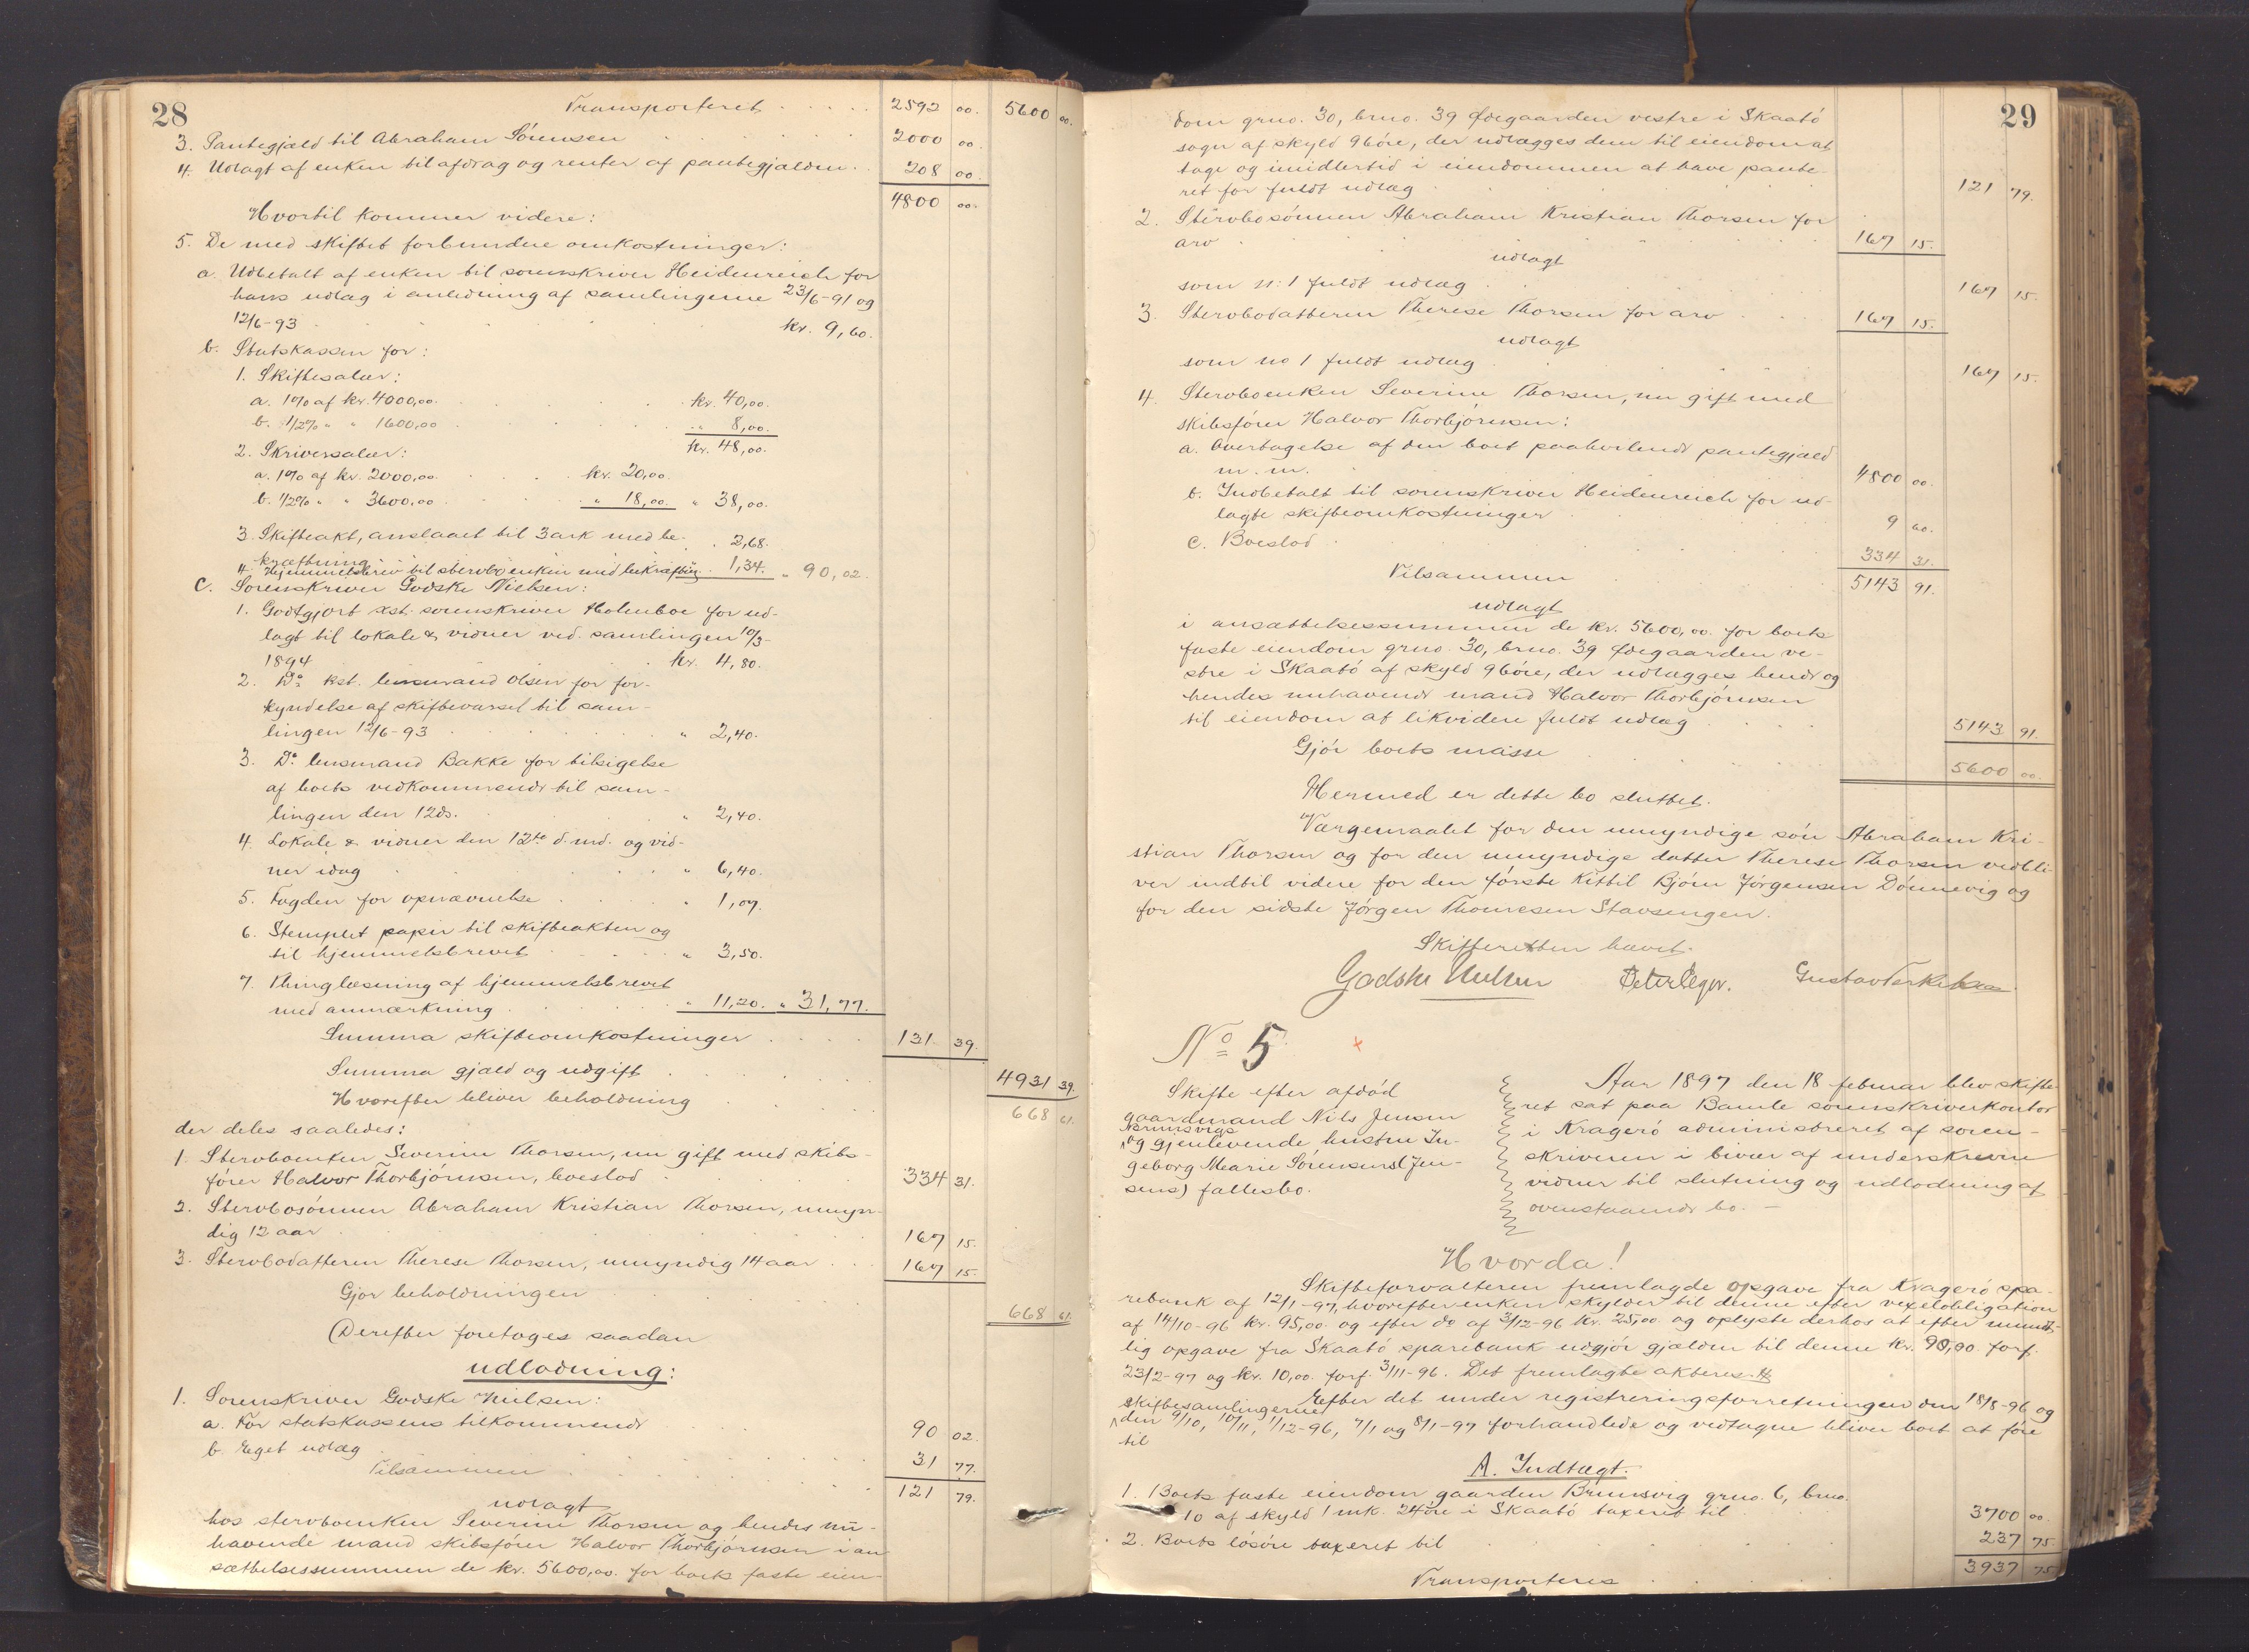 28
Transporteret . . . . . 2592 00. 5600 00.
3. Pantegjæld til Abraham Sørensen . . . . . 2000 00.
4. Udlagt af enken til afdrag og renter af pantegjælden . . 208 00.
4800 00.
Hvortil kommer videre:
5. De med skiftet forbundne omkostninger:
a. Udbetalt af enken til sorenskriver Heidenreich for
hans udlæg i anledning af samlingerne 23/6-91 og
12/6-93 . . . . . kr. 9,60.
b. Statskassen for:
1. Skiftesalær:
a. 1% af kr. 4000,00. . . . . kr. 40,00.
b. 1/2% " " 1600,00 . . . . . " 8,00.
kr. 48,00.
2. Skriversalær:
a. 1% af kr. 2000,00. . . . kr. 20,00.
b. 1/2% " " 3600,00 . . . . " 18,00. " 38,00.
3. Skifteakt, anslaaet til 3 ark med be- . 2,68.
kræftning
4. Hjemmelsbrev til stervboenken med bekræftng. . 1,34. " 90,02.
C. Sorenskriver Godske Nielsen:
1. Godtgjort kst. sorenskriver Holmboe for ud-
lagt til lokale & vidner ved samlingen 10/3-
1894 . . . . . kr. 4,80.
2. Do kst. lensmand Olsen for for-
kyndelse af skiftevarsel til sam-
lingen 12/6-93 . . . . . " 2,40.
3. Do lensmand Bakke for tilsigelse
af boets vedkommende til sam-
lingen den 12ds. . . . . " 2,40.
4. Lokale & vidner den 12te d. md. og vid-
ner idag . . . . . " 6,40.
5. Fogden for opnævnelse . . . . " 1,07.
6. Stemplet papir til skifteakten og
til hjemmelsbrevet . . . . " 3,50.
7. Thinglæsning af hjemmelsbrevet
med anmærkning . . . . " 11,20. " 31,77.
Summa skifteomkostninger . . . . 131 39.
Summa gjæld og udgift . . . . . 4931 39.
Hvorefter bliver beholdning . . . . 668 61.
der deles saaledes:
1. Stervboenken Severine Thorsen, nu gift med skibs-
fører Halvor Thorbjørnsen, boeslod . . . . 334 31.
2. Stervbosønnen Abraham Kristian Thorsen, umyn-
dig 12 aar . . . . . 167 15.
3. Stervbodatteren Therese Thorsen, umyndig 14 aar . . . 167 15.
Gjør beholdningen . . . . . 668 61.
Derefter foretoges saadan
udlodning:
1. Sorenskriver Godske Nielsen:
a. For statskassens tilkommende . . . . 90 02.
b. Eget udlæg . . . . . 31 77.
Tilsammen . . . . . 121 79.
udlagt
hos stervboenken Severine Thorsen og hendes nu-
havende mand skibsfører Halvor Thorbjørnsen i an-
sættelsessummen de kr. 5600,00. for boets faste eien-
29
dom grno. 30, brno. 39 Ødegaarden vestre i Skaatø
sogn af skyld 96 øre, der udlægges dem til eiendom at
tage og imidlertid i eiendommen at have pante-
ret for fuldt udlæg . . . . . 121 79.
2. Stervbosønnen Abraham Kristian Thorsen for
arv . . . . . 167 15.
udlagt
som n: 1 fuldt udlæg . . . . . 167 15.
3. Stervbodatteren Therese Thorsen for arv . . . 167 15.
udlagt
som no 1 fuldt udlæg . . . . . 167 15.
4. Stervboenken Severine Thorsen, nu gift med
skibsfører Halvor Thorbjørnsen:
a. Overtagelse af den boet paahvilende pantegjæld
m. m. . . . . . 4800 00.
b. Indbetalt til sorenskriver Heidenreich for ud-
lagte skifteomkostninger . . . . 9 60.
c. Boeslod . . . . . 334 31.
Tilsammen . . . . . 5143 91.
udlagt
i ansættelsessummen de kr. 5600,00. for boets
faste eiendom grno. 30, brno. 39 Ødegaarden ve-
stre i Skaatø af skyld 96 øre, der udlægges hende og
hendes nuhavende mand Halvor Thorbjørnsen
til eiendom at likvidere fuldt udlæg . . . . 5143 91.
Gjør boets masse . . . . . 5600 00.
Hermed er dette bo sluttet.
Værgemaalet for den umyndige søn Abraham Kri-
stian Thorsen og for den umyndige datter Therese Thorsen vedbli-
ver indtil videre for den første Kittil Bjørn Jørgensen Dønnevig og
for den sidste Jørgen Thomesen Stavsengen.
Skifteretten hævet.
Godske Nielsen Peter Leger. Gustav
No 5
Skifte efter afdød
gaardmand Nils Jensen
Brunsvigs
og gjenlevende hustru In-
geborg Marie Sørensens (Jen-
sens) fællesbo.
Aar 1897 den 18 februar blev skifte-
ret sat paa Bamle sorenskriverkontor
i Kragerø administreret af soren-
skriveren i bivær af underskrevne
vidner til slutning og udlodning af
ovenstaaende bo. –
Hvorda!
Skifteforvalteren fremlagde opgave fra Kragerø spa-
rebank af 12/1-97, hvorefter enken skylder til denne efter vexelobligation
af 14/10-96 kr. 95,00. og efter do af 3/12-96 kr. 25,00 og oplyste derhos at efter mundt-
lig opgave fra Skaatø sparebank udgjør gjælden til denne kr. 90,00. forf.
23/2-97 og kr. 10,00. forf. 3/11-96. Det fremlagte akteres.
Efter det under registreringsforretningen den 18/8-96 og
skiftesamlingerne
den 9/10, 10/11, 1/12-96, 7/1 og 8/1-97 forhandlede og vedtagne bliver boet at føre
til
A. Indtægt.
1. Boets faste eiendom gaarden Brunsvig grno. 6, brno.
10 af skyld 1 mk. 24 øre i Skaatø taxeret til . . . 3700 00.
2. Boets løsøre taxeret til . . . . . 237 75.
Transporteres . . . . . 3937 75